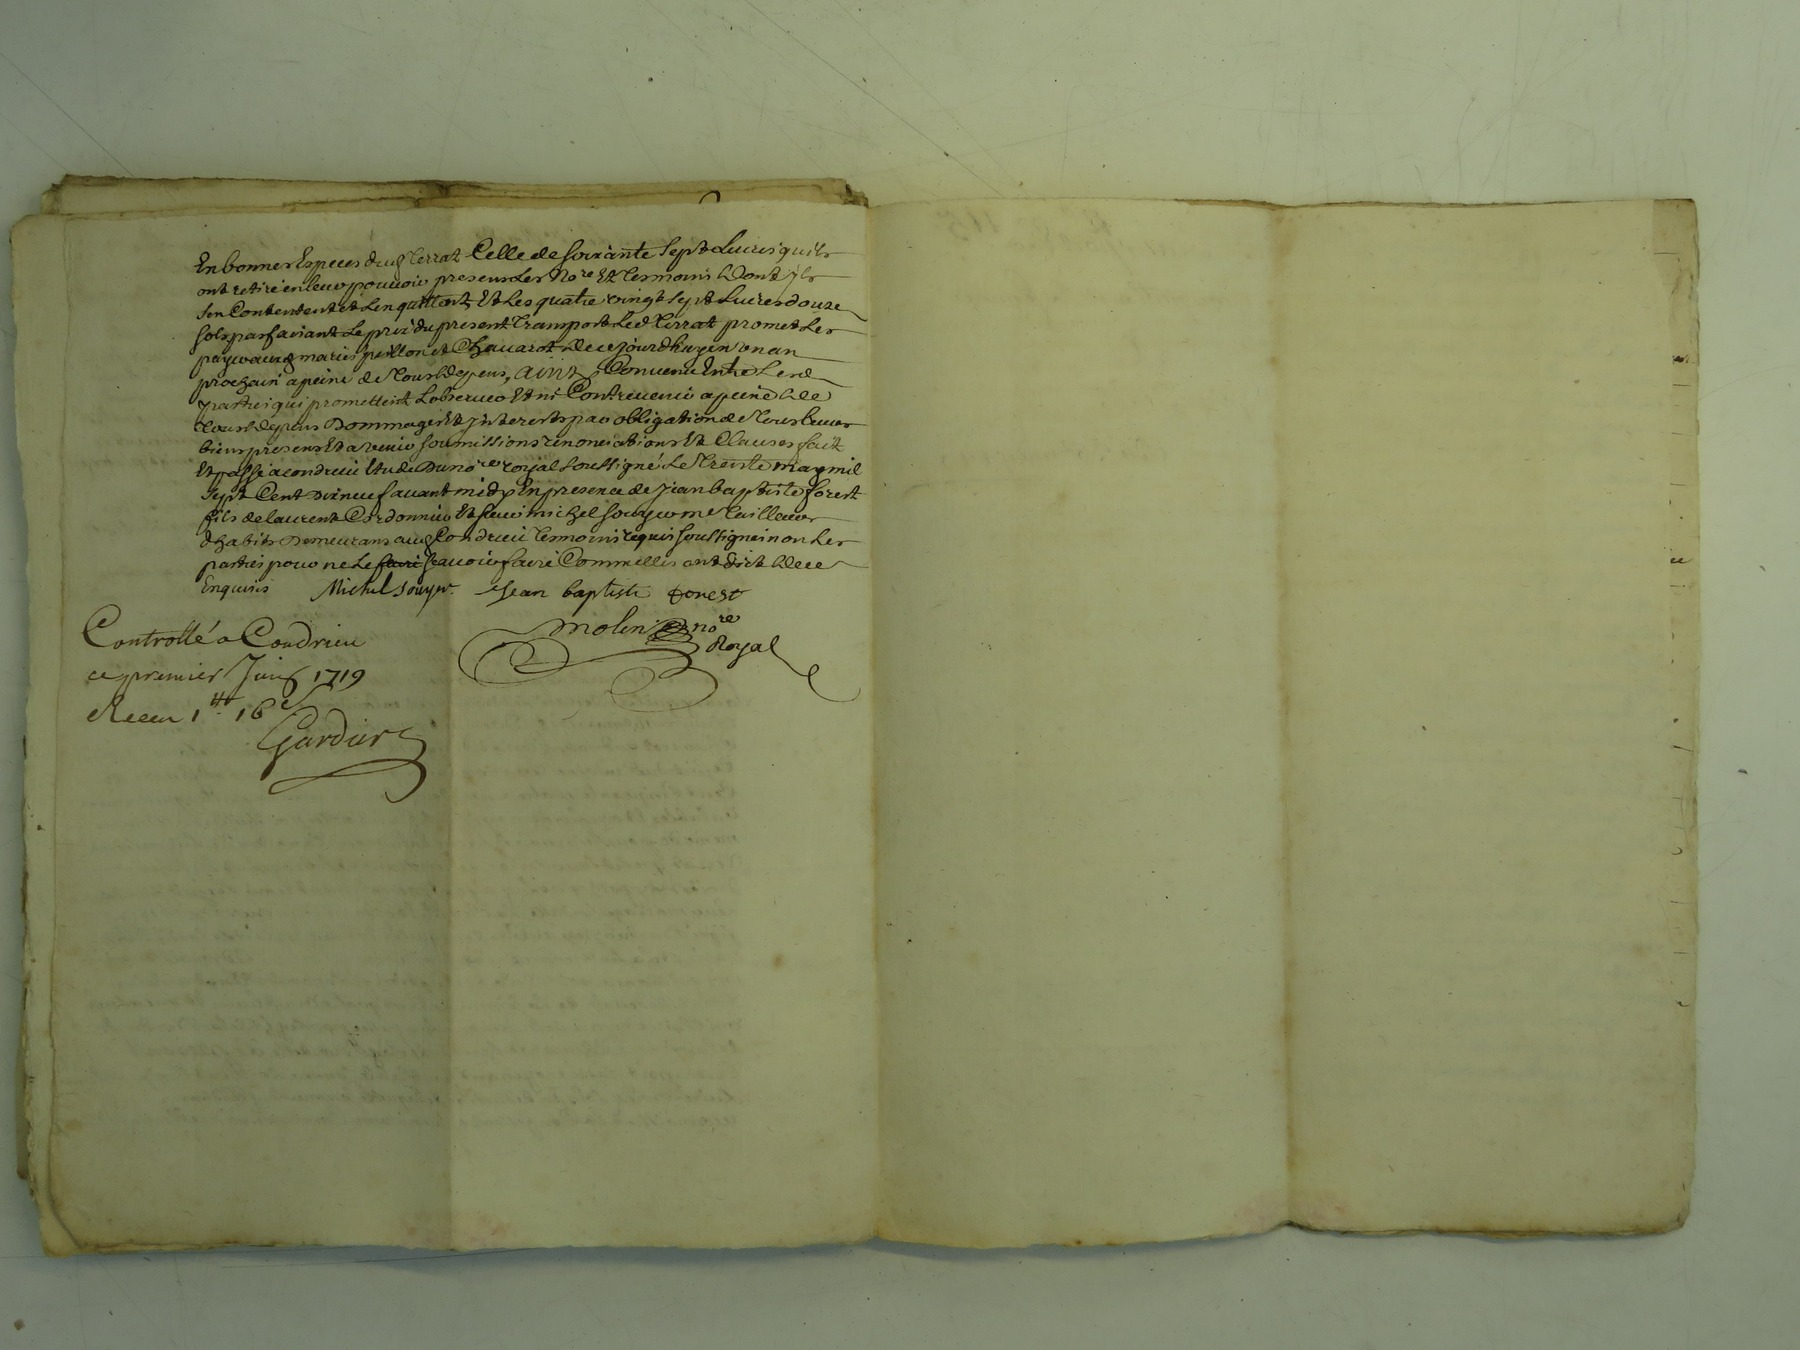 En bonnes Especes dud Terrat Celle de soixante sept Livres quils
ont retiré en leur pouvoir presens Les No.re Et tesmoins Dont ils
sen Contentent et Len quittent, Et Les quatre vingt sept Livres douze
sols parfaisant Le prix du present Transport Led Terrat promet Les
payer auxd mariés peillon et Chavarot de ce jourdhuy en un an
prochain a peine de Tous despens, Ainsy Convenu Entre Lesd
parties qui promettent Lobserver Et ny Contrevenir a peine de
Tous despens Dommages Et Interests par obligation de Tous leurs
biens presens Et a venir soumissions renonciations Et Clauses fait
Et passé a condrieu Etude Du no.re royal soussigné Le Trente may mil
sept Cent Dixneuf avant midy En presence de Jean baptiste forest
fils de laurent Cordonnier Et sieur michel souyer me Tailleur
dhabits Demeurans aud Condrieu Tesmoins requis soussignés non Les
parties pour ne Le faire sçavoir faire Comme elles ont dict de ce
Enquises Michel souyer Jean baptiste forest
Controllé a Condrieu
ce premier Juin 1719
Receu 1tt 16s
Gardier
molin no.re
Royal